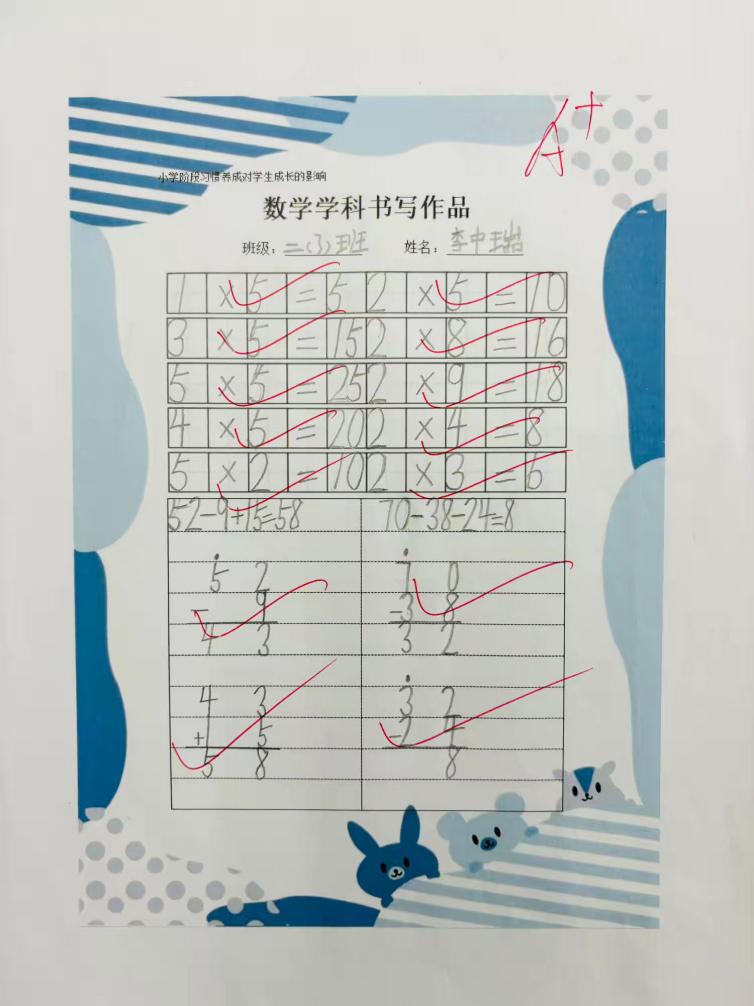 A+
小学阶段习惯养成对学生成长的影响
数学学科书写作品
班级：二(3)班 姓名：李中瑞喆
1×5=5 2×5=10
3×5=15 2×8=16
5×5=25 2×9=18
4×5=20 2×4=8
5×2=10 2×3=6
52-9+15=58 70-38-24=8
52 70
-9 -38
43 32
43 32
+15 -24
58 8